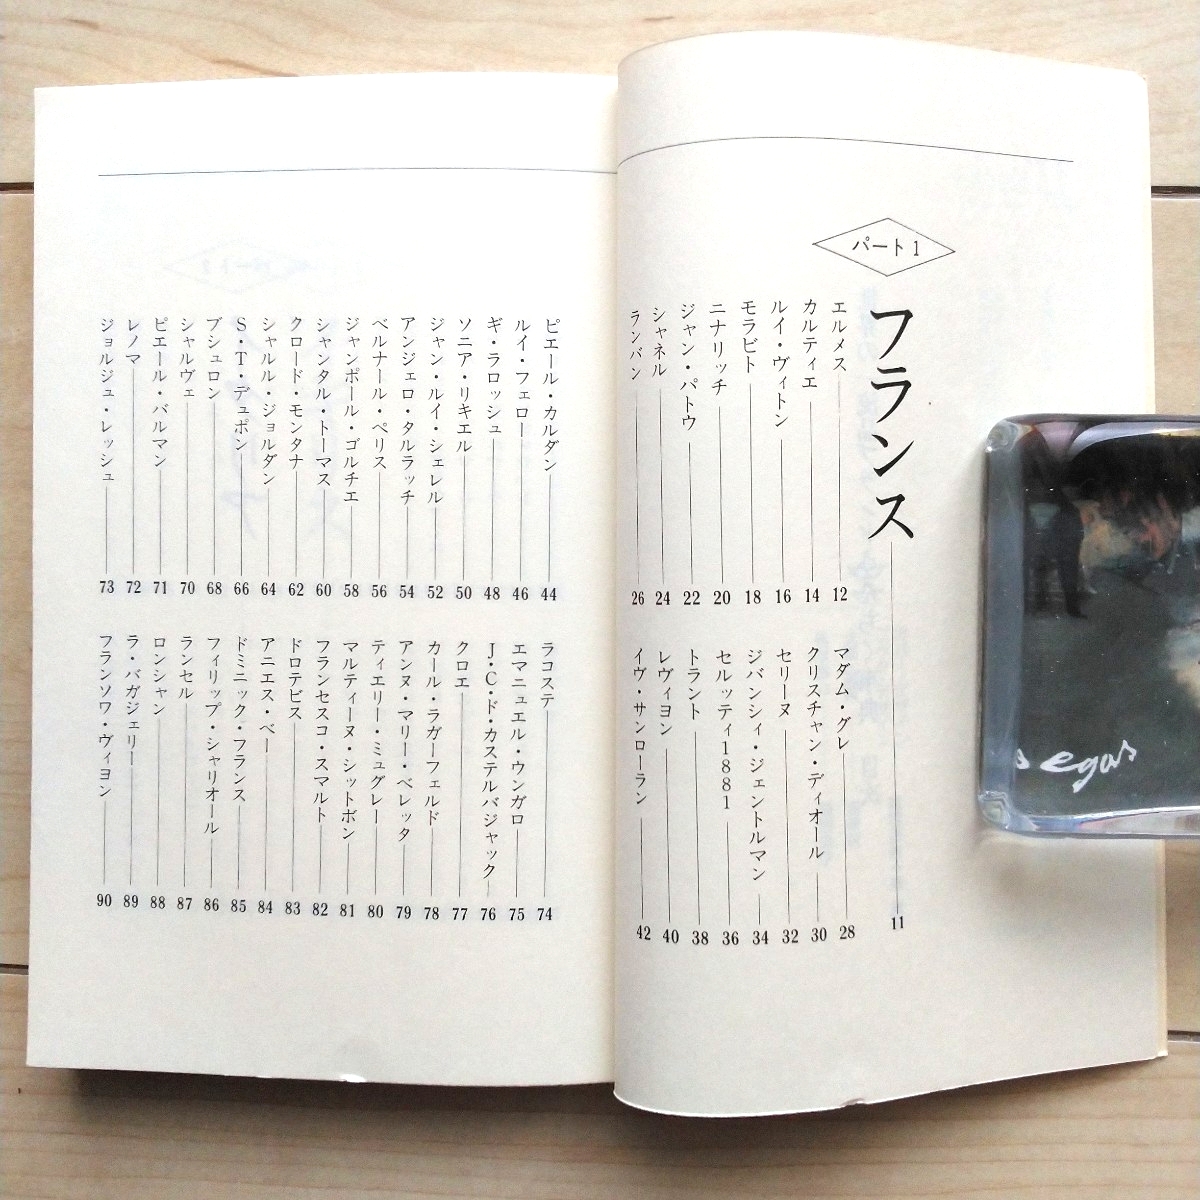 パート1
フランス 11
エルメス 12
カルティエ 14
ルイ・ヴィトン 16
モラビト 18
ニナリッチ 20
ジャン・パトウ 22
シャネル 24
ランバン 26
マダム・グレ 28
クリスチャン・ディオール 30
セリーヌ 32
ジバンシィ・ジェントルマン 34
セルッティ1881 36
トラント 38
レヴィヨン 40
イヴ・サンローラン 42
ピエール・カルダン 44
ルイ・フェロー 46
ギ・ラロッシュ 48
ソニア・リキエル 50
ジャン・ルイ・シェレル 52
アンジェロ・タルラッチ 54
ベルナール・ペリス 56
ジャンポール・ゴルチエ 58
シャンタル・トーマス 60
クロード・モンタナ 62
シャルル・ジョルダン 64
S・T・デュポン 66
ブシュロン 68
シャルヴェ 70
ピエール・バルマン 71
レノマ 72
ジョルジュ・レッシュ 73
ラコステ 74
エマニュエル・ウンガロ 75
J・C・ド・カステルバジャック 76
クロエ 77
カール・ラガーフェルド 78
アンヌ・マリー・ベレッタ 79
ティエリー・ミュグレー 80
マルティーヌ・シットボン 81
フランセスコ・スマルト 82
ドロテビス 83
アニエス・ベー 84
ドミニック・フランス 85
フィリップ・シャリオール 86
ランセル 87
ロンシャン 88
ラ・バガジェリー 89
フランソワ・ヴィヨン 90
egas